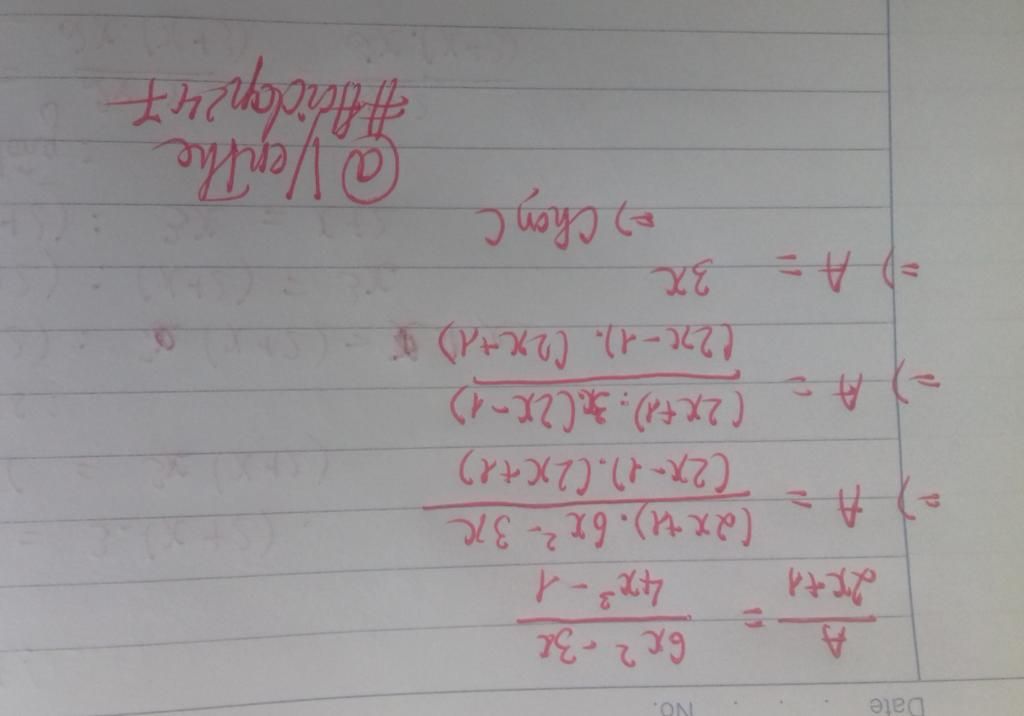 Date No.
A/(2x+1) = (6x² - 3x)/(4x² - 1)
=) A = ((2x+1). 6x² - 3x)/((2x-1).(2x+1))
=) A = ((2x+1). 3x.(2x-1))/((2x-1).(2x+1))
=) A = 3x
=) Chọn C
@VenThe
#Hoidap247